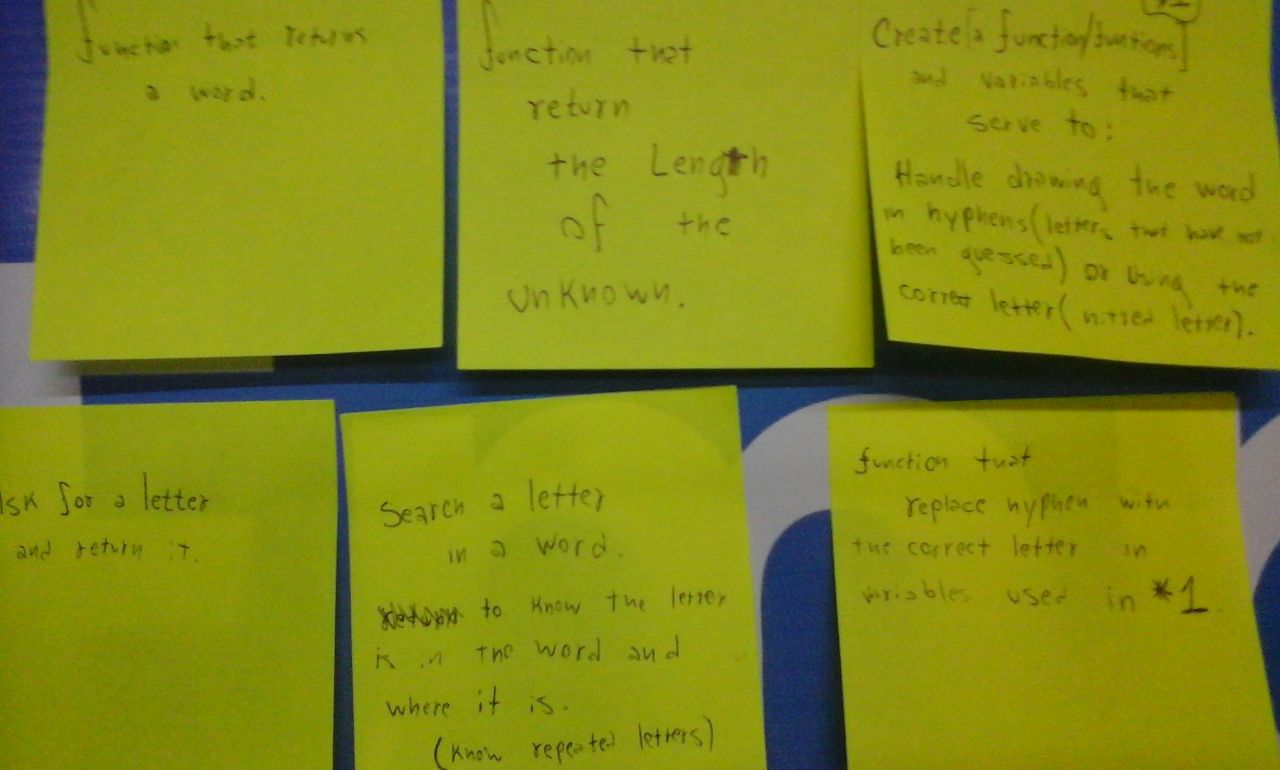 function that returns
a word.
function that
return
the Length
of the
unknown.
Create[a function/funtions]
and variables that
serve to:
Handle drawing the word
in hyphens(letters that have not
been guessed) or using the
correct letter( letter).
Ask for a letter
and return it.
Search a letter
in a word.
to know the letter
is in the word and
where it is.
(know repeated letters)
function that
replace hyphen with
the correct letter in
variables used in *1